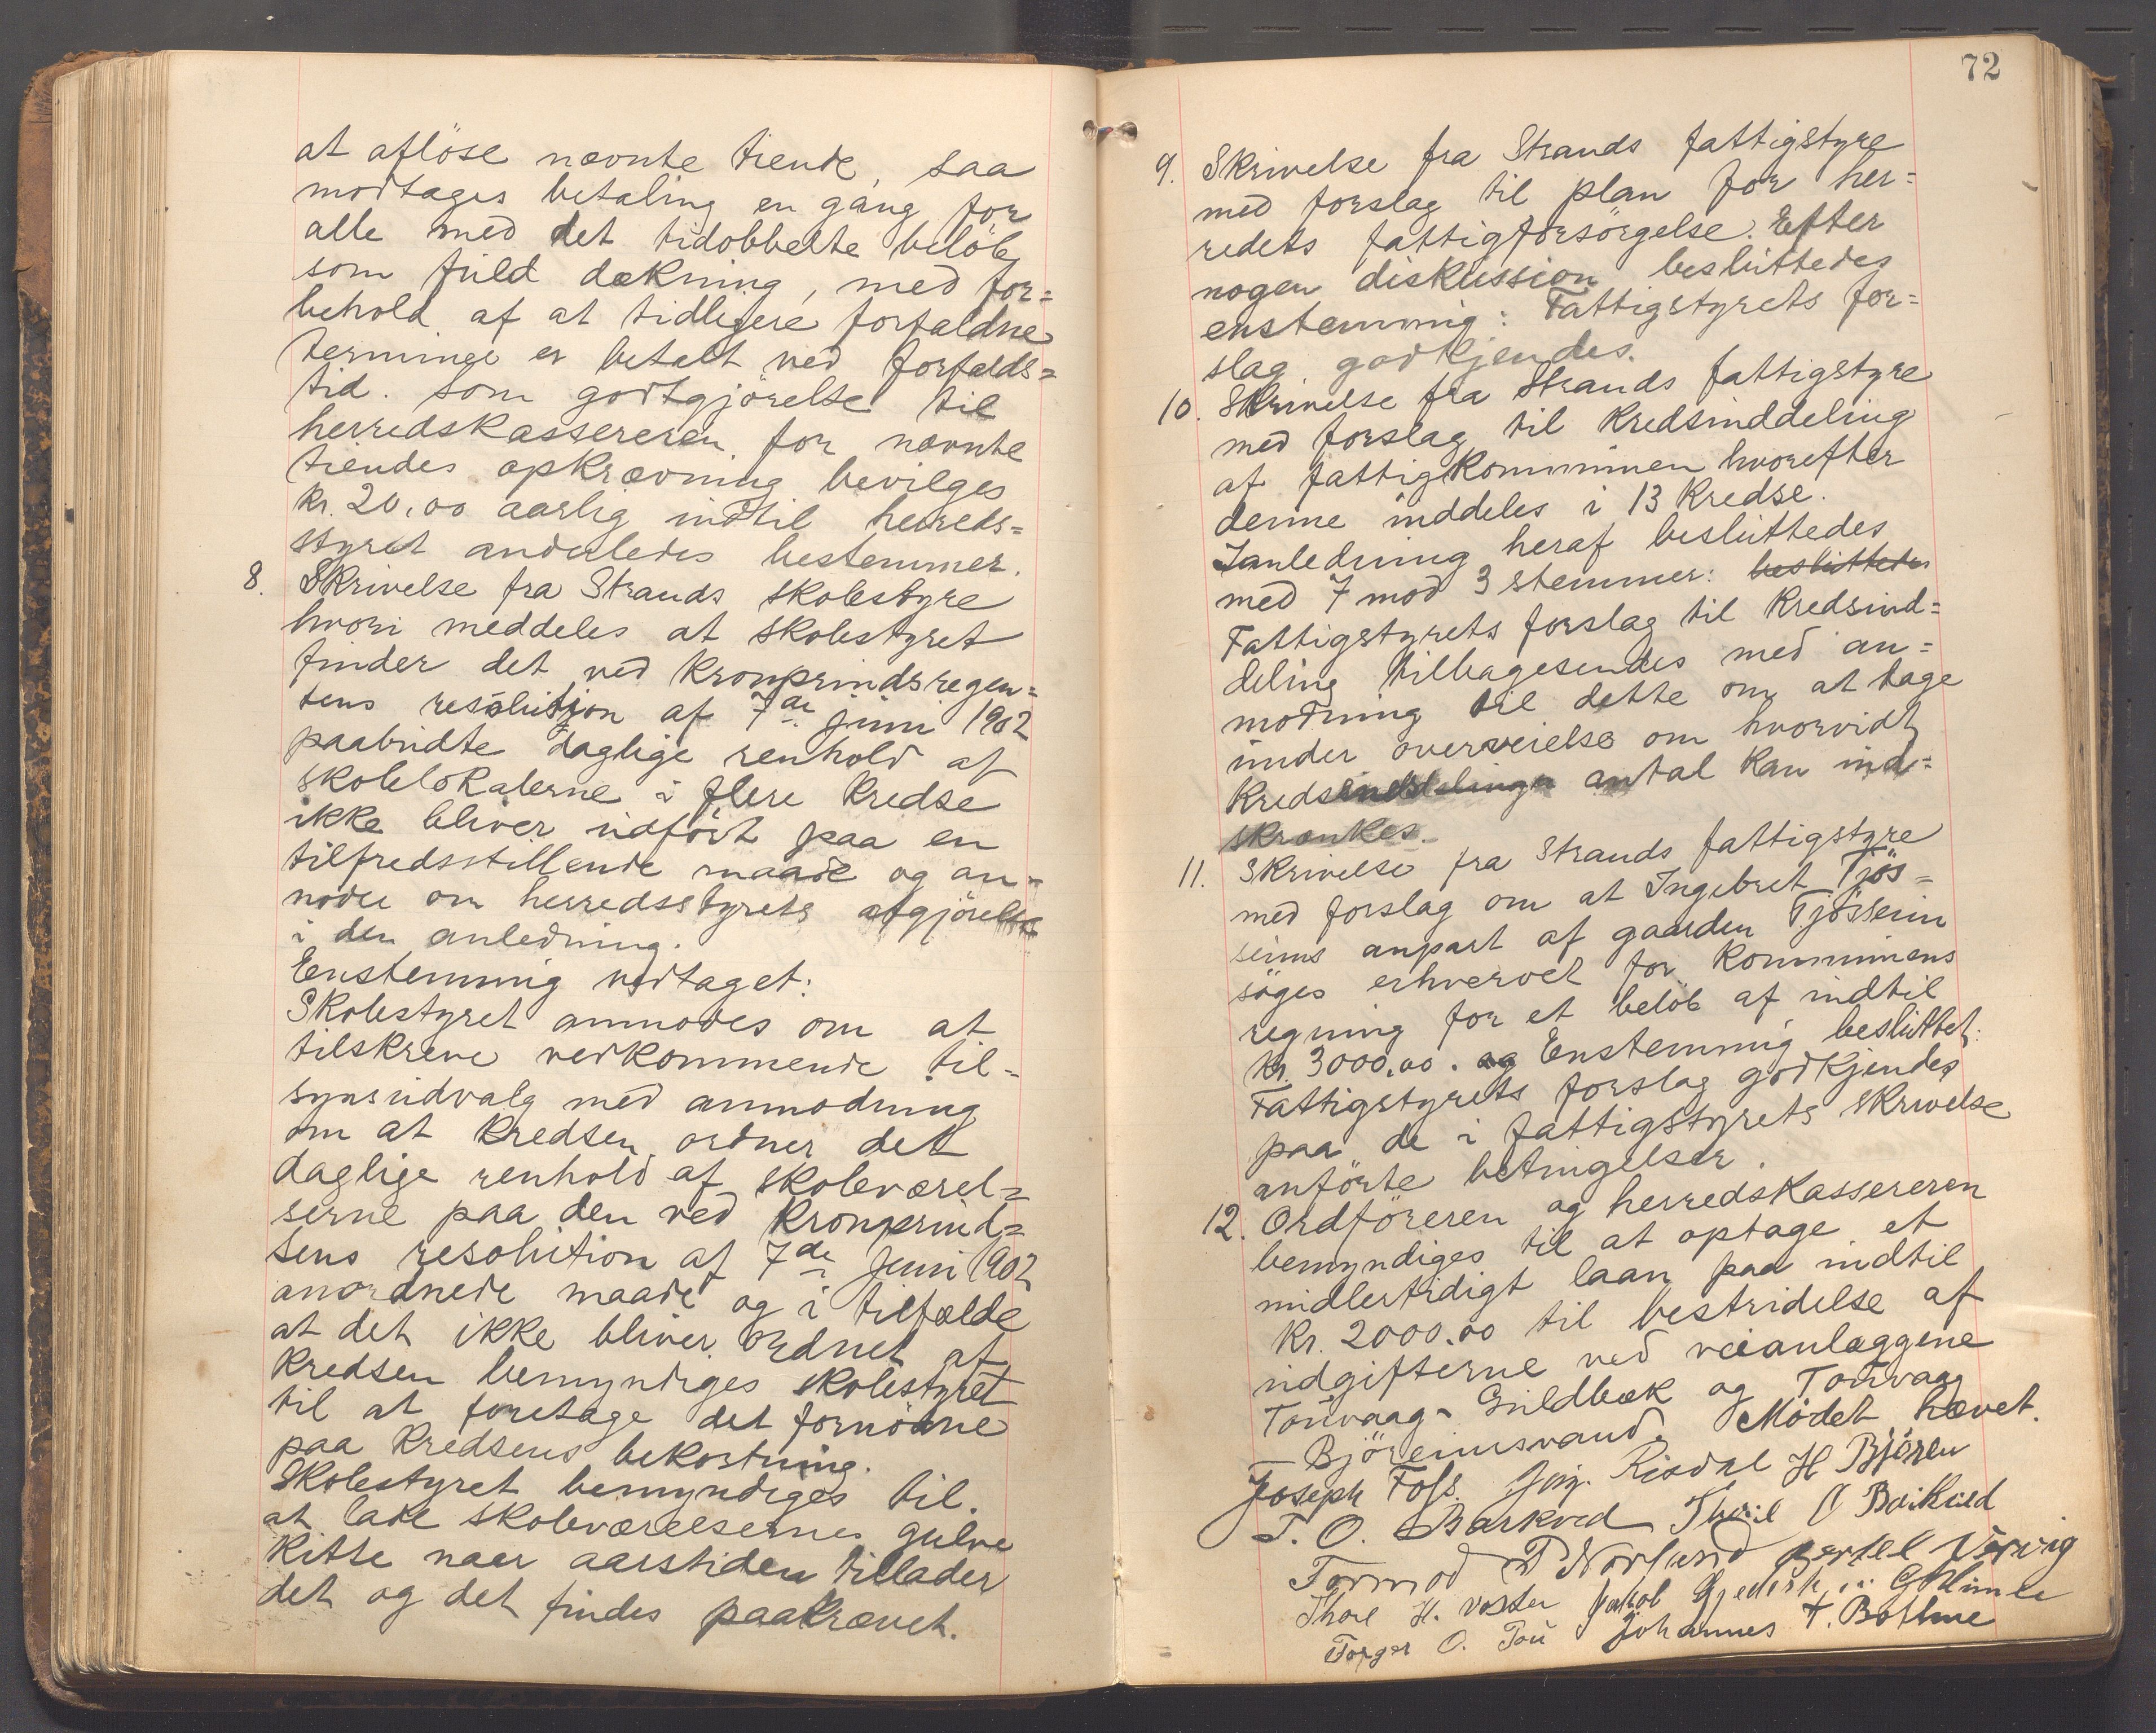 at aflöse nævnte tiende, saa
modtages betaling en gang for
alle med det tidobbelte belöb
som fuld dækning, med for=
behold af at tidligere forfaldne
terminer er betalt ved forfalds=
tid. Som godtgjörelse til
herredskassereren for nævnte
tiendes opkrævning bevilges
kr. 20,00 aarlig indtil herreds=
styret anderledes bestemmer.
8. Skrivelse fra Strands skolestyre
hvori meddeles at skolestyret
finder det ved Kronprindsregen=
tens resolution af 7de juni 1902
paabudte daglige renhold af
skolelokalerne i flere kredse
ikke bliver udfört paa en
tilfredsstillende maade og an=
moder om herredsstyrets afgjörelse
i den anledning.
Enstemmig vedtaget:
Skolestyret anmodes om at
tilskrive vedkommende til=
synsudvalg med anmodning
om at kredsen ordner det
daglige renhold af skoleværel=
serne paa den ved Kronprind=
sens resolution af 7de juni 1902
anordnede maade og i tilfælde
at det ikke bliver ordnet af
kredsen bemyndiges skolestyret
til at foretage det fornödne
paa kredsens bekostning.
Skolestyret bemyndiges til.
at lade skoleværelsernes gulve
kitte naar aarstiden tillader
det og det findes paakrævet.
72
9. Skrivelse fra Strands fattigstyre
med forslag til plan for her=
redets fattigforsörgelse. Efter
nogen diskussion besluttedes
enstemmig: Fattigstyrets for=
slag godkjendes.
10. Skrivelse fra Strands fattigstyre
med forslag til kredsinddeling
af fattigkommunen hvorefter
denne inddeles i 13 kredse.
I anledning heraf besluttedes
med 7 mod 3 stemmer: besluttedes
Fattigstyrets forslag til kredsind=
deling tilbagesendes med an=
modning til dette om at tage
under overveielse om hvorvidt
kredsinddelinge antal kan ind=
skrænkes.
11. Skrivelse fra Strands fattigstyre
med forslag om at Ingebret Tjös=
seims anpart af gaarden Tjösseim
söges erhvervet for kommunens
regning for et belöb af indtil
kr. 3000,00. og Enstemmig besluttet:
Fattigstyrets forslag godkjendes
paa de i fattigstyrets skrivelse
anförte betingelser.
12. Ordföreren og herredskassereren
bemyndiges til at optage et
midlertidigt laan paa indtil
kr. 2000.00 til bestridelse af
udgifterne ved veianlæggene
Touvaag - Guldbæk og Touvaag
- Björeimsvand. Mödet hævet.
Joseph Foss. Jörg. Risdal H Björen
T. O. Barkved Thoril O Barkved
Tormod P Norland Bertel Vervig
Thore H. Voster Jakob
Torger O. Tou Johannes T. Bothne